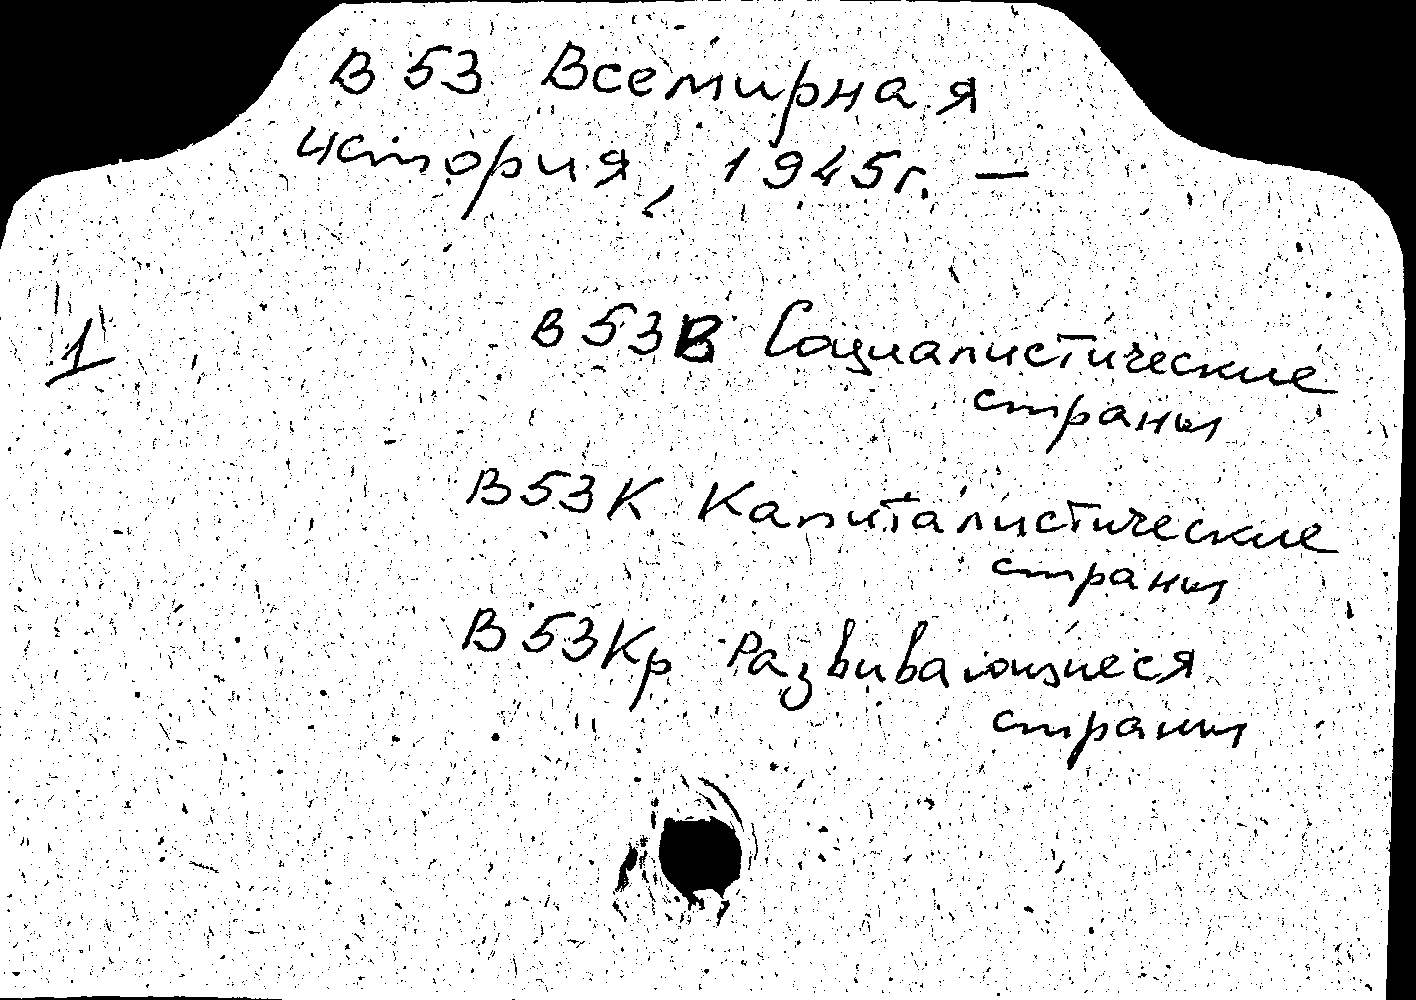 В 53 Всемирная
история, 1945г. —
1
В 53В Социалистические
страны
В53К Капиталистические
страны
В 53Кр Развивающиеся
страны